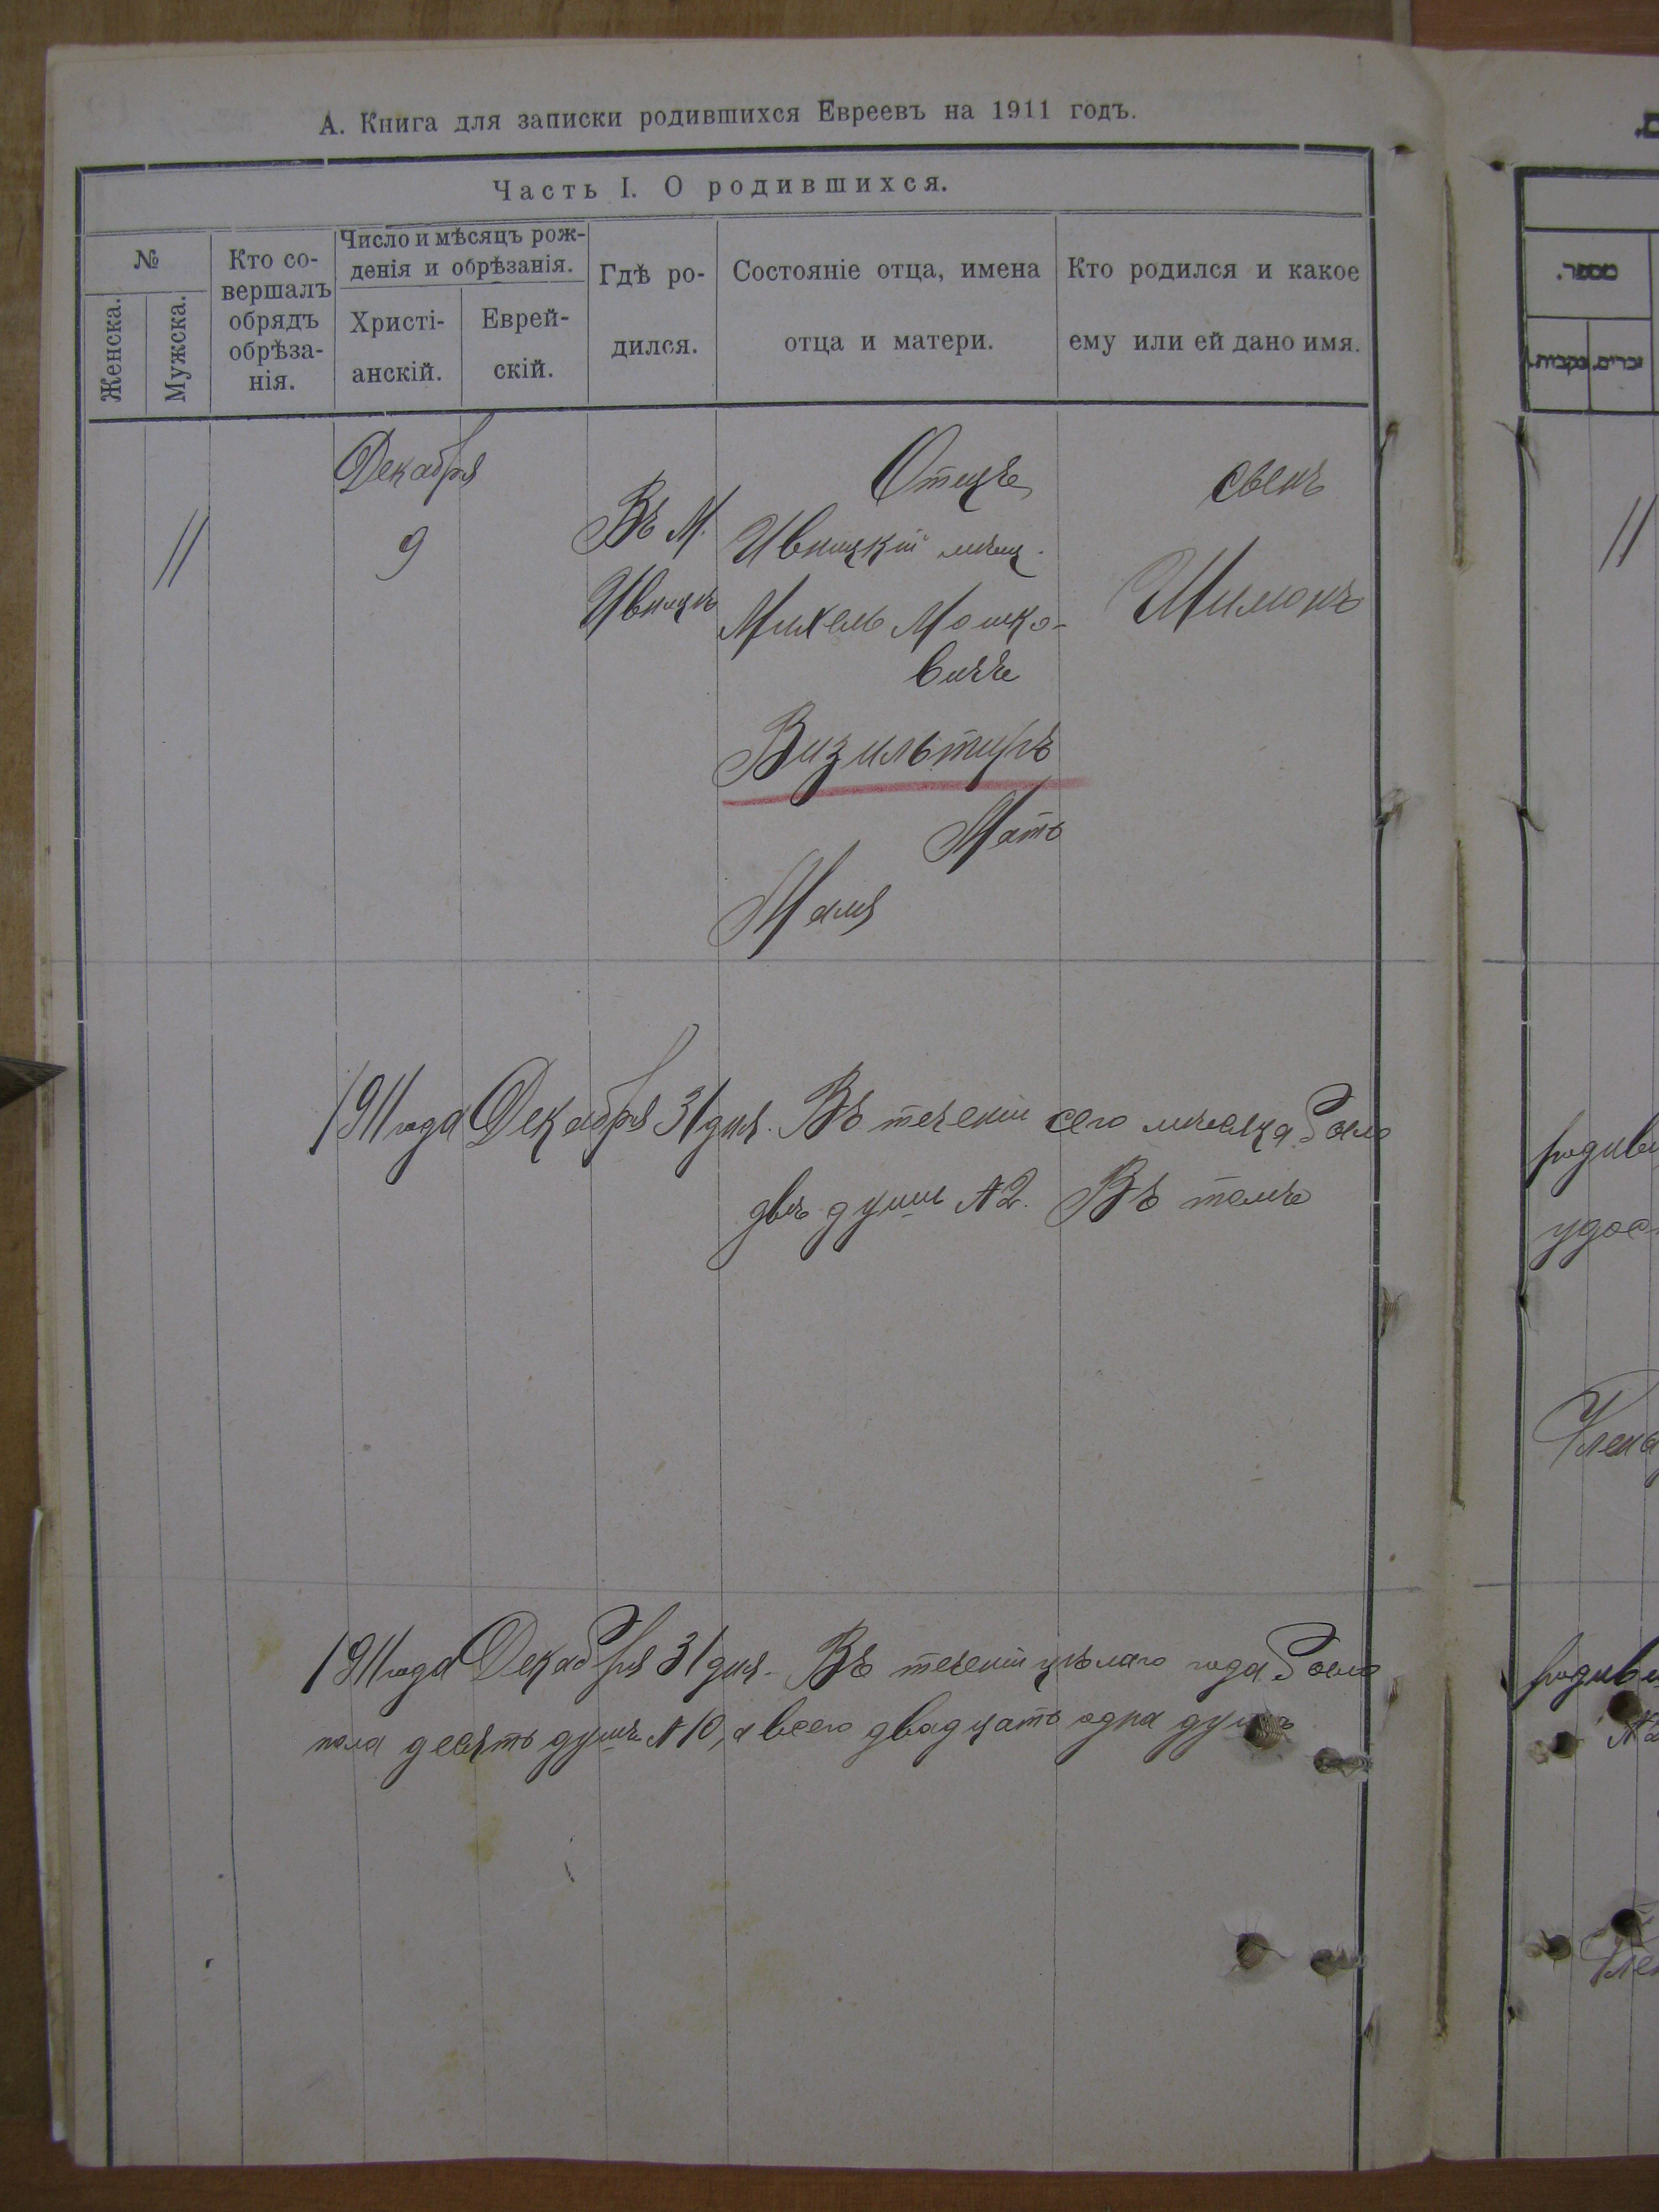 А. Книга для записки родившихся Евреевъ на 1911 годъ.
Часть I. О родившихся.
№
Женска.
Мужска.
Кто со-
вершалъ
обрядъ
обрѣза-
нія.
Число и мѣсяцъ рож-
денія и обрѣзанія.
Христі-
анскій.
Еврей-
скій.
Гдѣ ро-
дился.
Состояніе отца, имена
отца и матери.
Кто родился и какое
ему или ей дано имя.
מספר.
זכרים.
נקבות.
Декабря
11
9
Въ М.
Ивницѣ
Отецъ
Ивницкій мѣщ.
Михель Мошко-
вичъ
Визильтиръ
Мать
Маля
сынъ
Шимонъ
11
1911 года Декабря 31 дня. Въ теченіи сего мѣсяца было
двѣ души №2. Въ томъ
1911 года Декабря 31 дня. Въ теченіи цѣлаго года было
пола десять душъ №10, а всего двадцать одна душъ